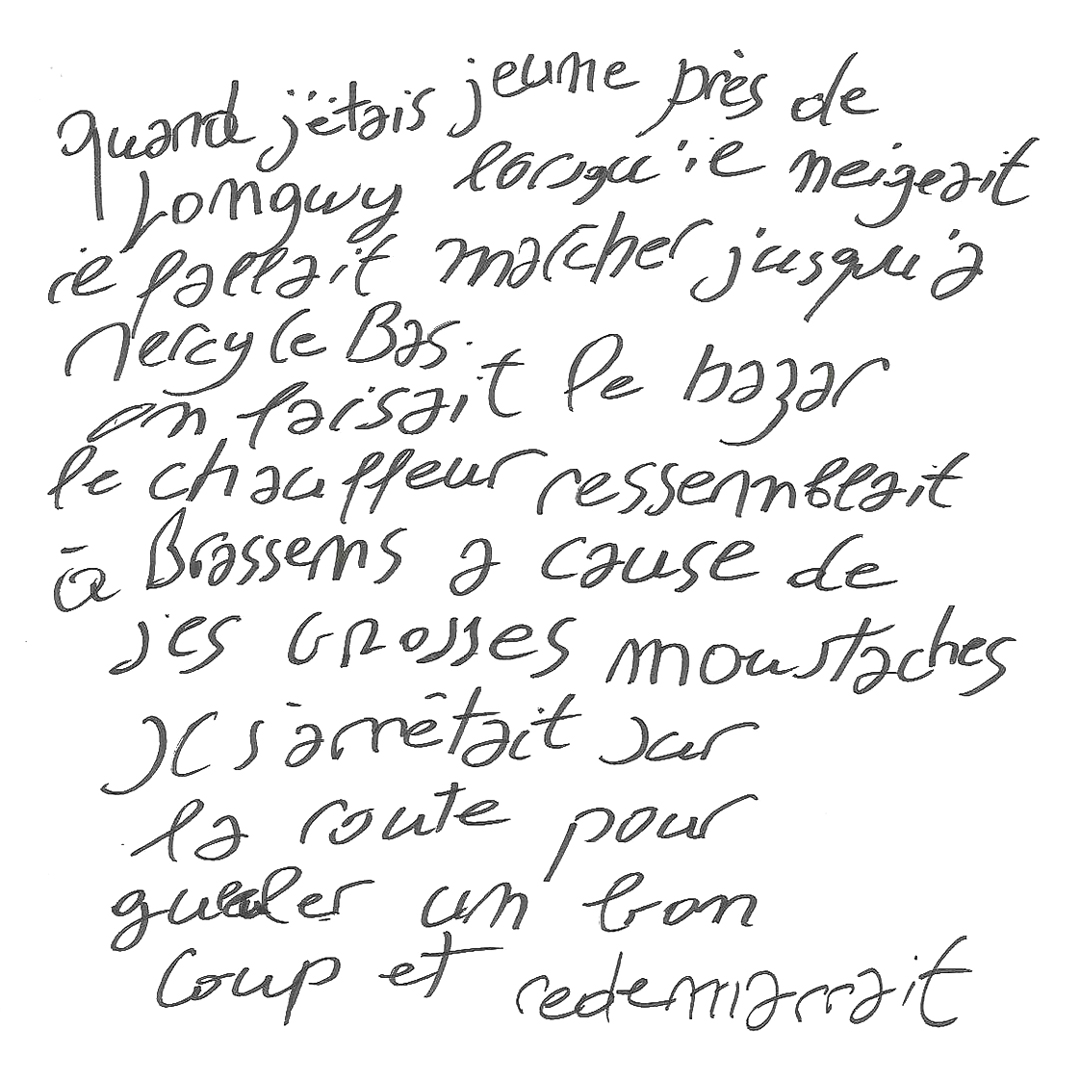 quand j'étais jeune près de
Longwy lorsqu'il neigeait
il fallait marcher jusqu'à
Mercy le Bas.
on faisait le bazar
le chauffeur ressemblait
à Brassens a cause de
ses GROSSES moustaches
Il s'arrêtait sur
la route pour
gueuler un bon
coup et redemarrait